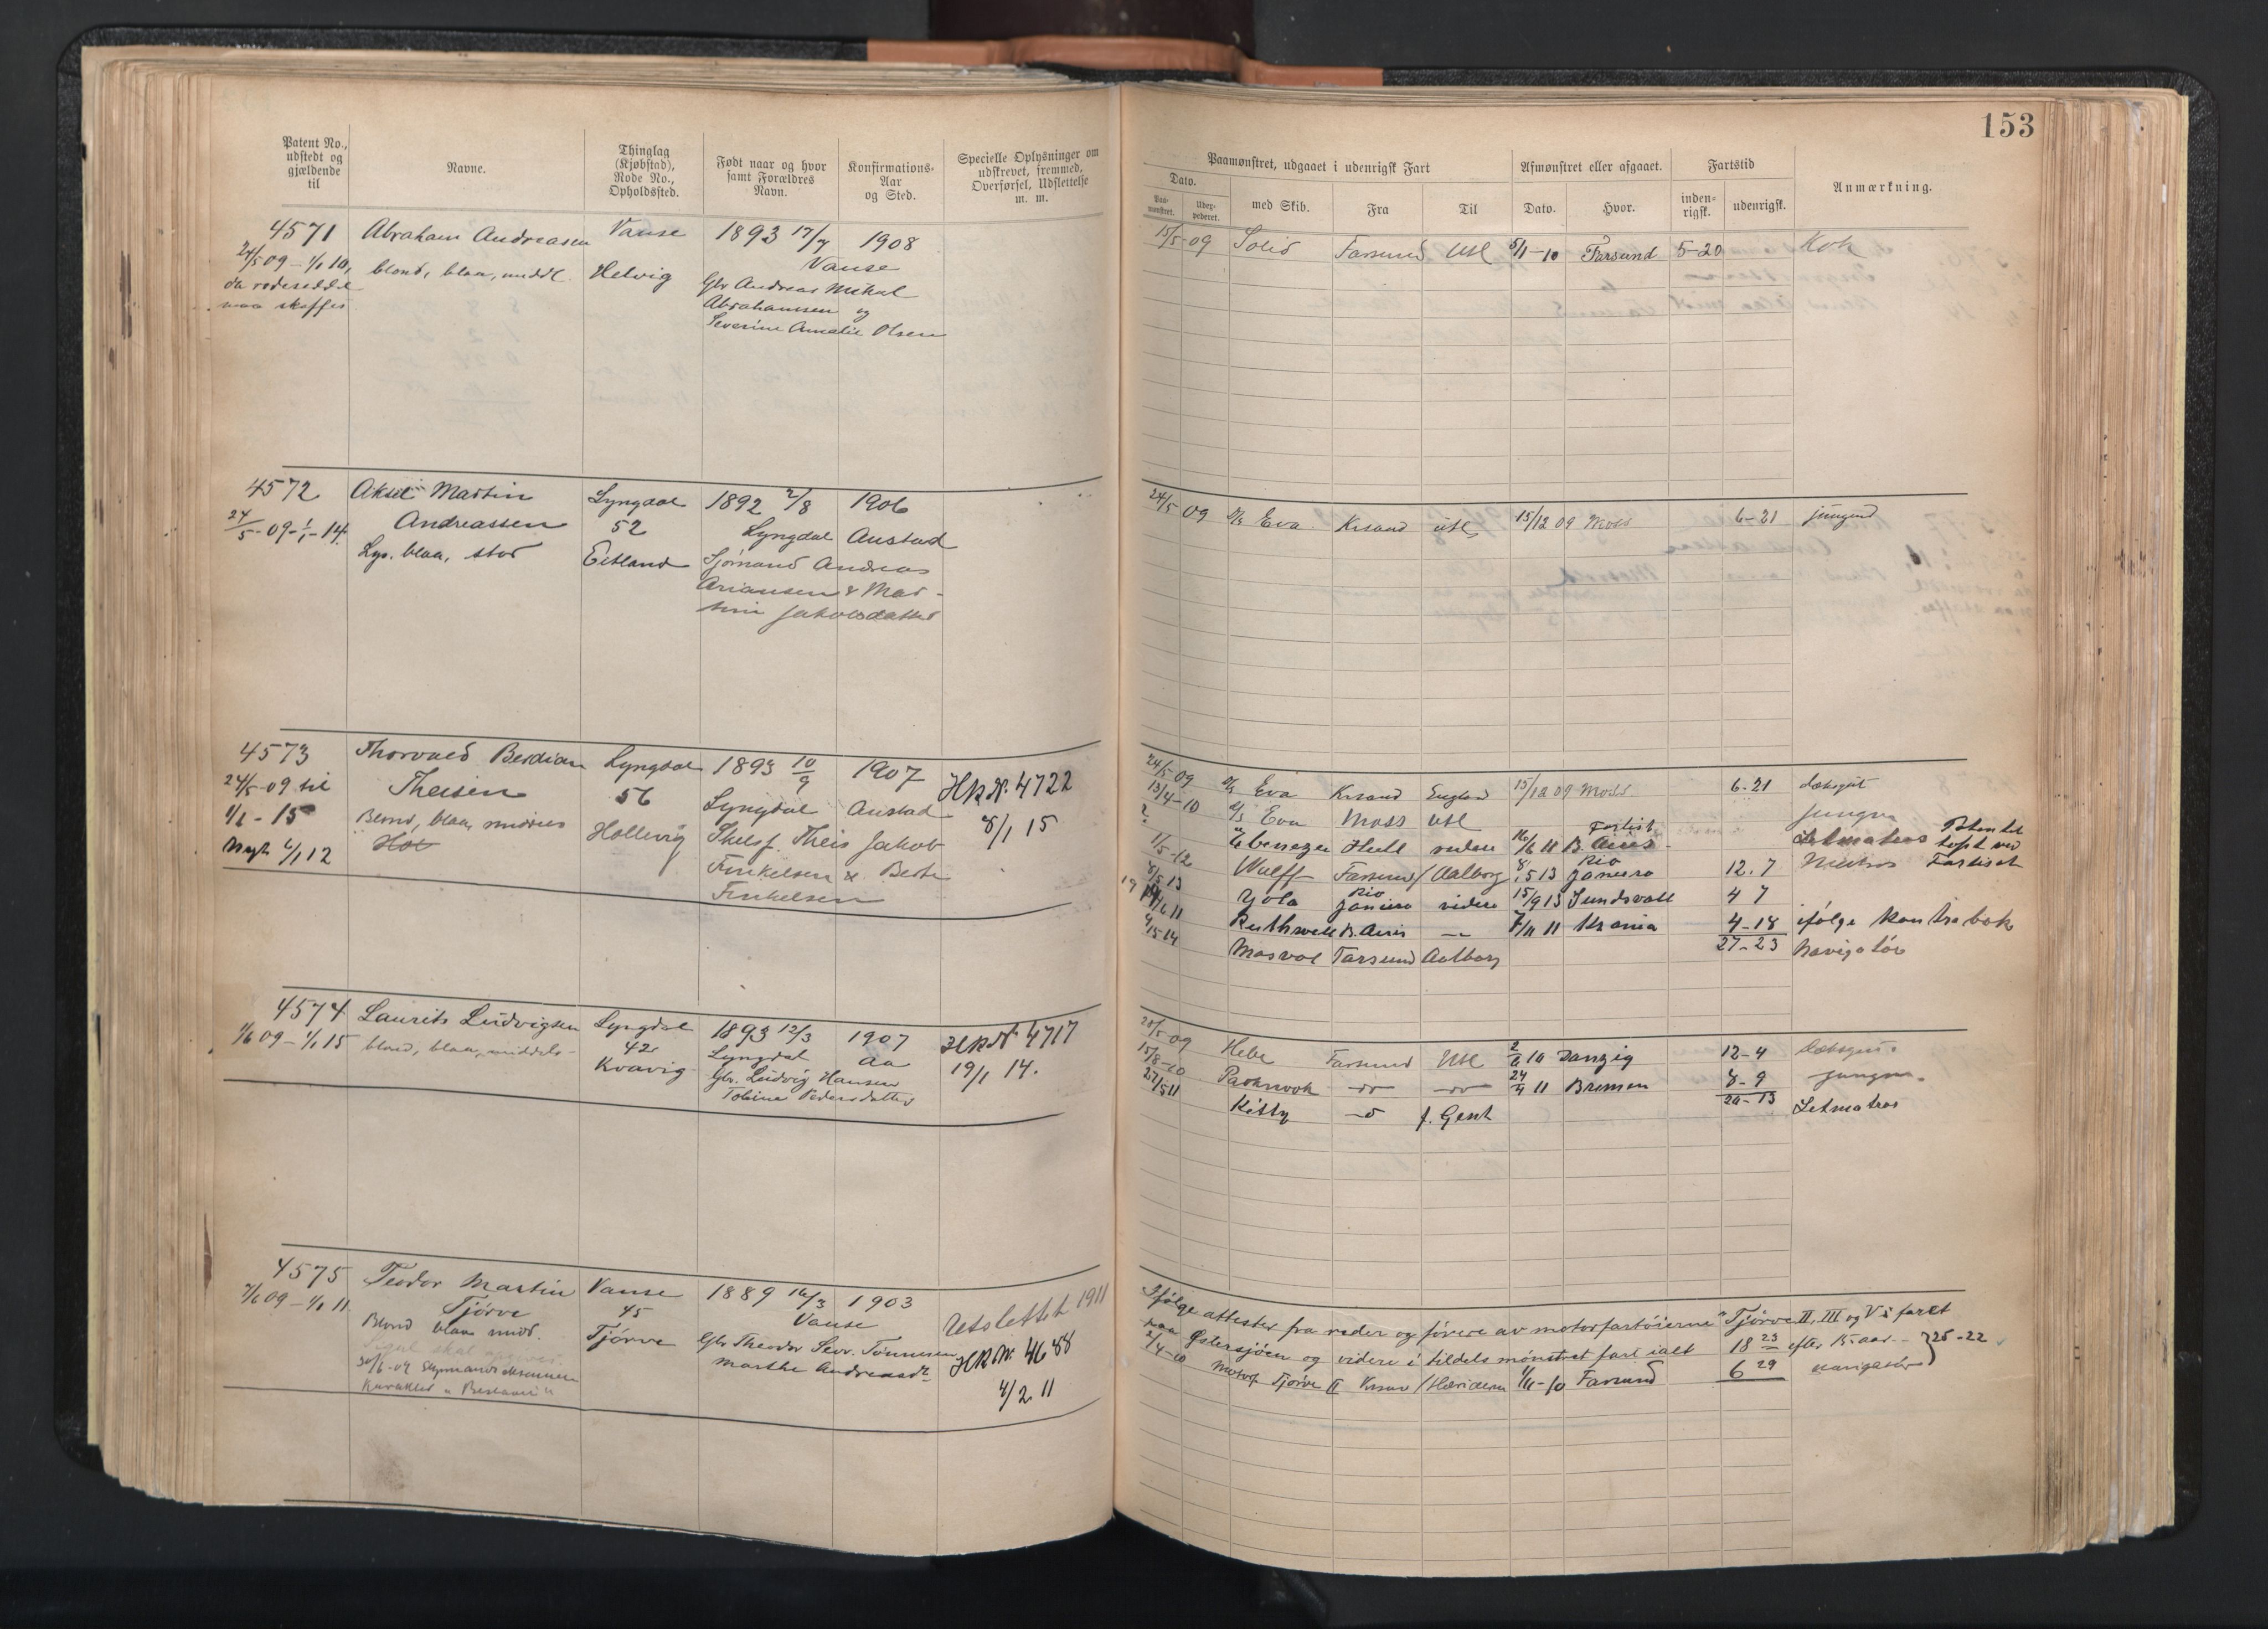 153
Patent No., udstedt og gjældende til
Navne.
Thinglag (Kjøbstad), Rode No., Opholdssted.
Født naar og hvor samt Forældres Navn.
Konfirmations-Aar og Sted.
Specielle Oplysninger om udskrevet, fremmed, Overførsel, Udslettelse m. m.
Paamønstret, udgaaet i udenrigsk Fart
Afmønstret eller afgaaet.
Fartstid
Anmærkning.
Dato.
med Skib.
Fra
Til
Dato.
Hvor.
inden-rigsk.
udenrigsk.
4571 Abraham Andreasen Vanse 1893 17/7 1908
24/5 09 – 1/1 10, blond, blaa, middl. Helvig Vanse
da rodeseddel Gbr Andreas Mikal
maa skaffes Abrahamsen og
Severine Amalie Olsen
15/5-09 Solid Farsund Utl 5/11-10 Farsund 5-20 Kok
4572 Aksel Martin Lyngdal 1892 2/8 1906
24/5-09-1/1-14. Andreassen 52 Lyngdal Austad
Lys. blaa, stor Eitland Sjømand Andreas
Ariansen & Mar-
tine Jakobsdatter
24/5 09 Eva Krsand utl 15/12 09 Moss 6-21 jungmd
4573 Thorvald Berdian Lyngdal 1893 10/9 1907 HR Nr. 4722
24/5-09 til Theisen 56 Lyngdal Austad 8/1 15
1/1-15 Blond, blaa, middels Hollevig Theis Jakob
Nyt 2/1 12 Finkelsen & Berte
Finkelsen
24/5 09 Eva Krsand England 15/12 09 Moss 6-21 dæksgut
13/4-10 Eva Moss Utl jungm
Ebenezer Hull videre 16/6 11 B. Aires Letmatros
1/5-12 Wulff Farsund/Aalborg 8/5 13 Rio Janeiro 12.7 Matros
8/5 13 Yola Rio Janiero videre 15/9 13 Sundsvall 4 7
Ruthwell B. Aires 7/11 11 Krania 4-18 ifølge kontrabok
27-23
Mosvol Farsund Aalborg Navigatør
4574 Laurits Ludvigsen Lyngdal 1893 12/3 1907 HR Nr 4717
1/6 09 – 1/1 15 blond, blaa, middels 42 Lyngdal Aa 19/1 14.
Kvavig Gbr. Ludvig Hansen
Tobine Pedersdatter
28/5-09 Hebe Farsund Utl 2/6 10 Danzig 12-4 dæksgut
15/8-10 Parknook 24/4 11 Bremen 8-9 jungm.
20-13
27/5 11 Kitty f. Gent Letmatros
4575 Teodor Martin Vanse 1889 16/3 1903 Utslettet 1911
7/6 09 – 1/1 11. Tjørve 45 Vanse HR Nr. 4688
Blond blaa midd. Tjørve Gbr Theodor Sev. Tønnesen 4/2 11
Marthe Andreasd.
Ifølge attester fra reder og førere av motorfartøierne "Tjørve II, III og V i fart
paa Østersjøen og videre i tildels mønstret fart ialt 18 23 efter 15 aar – 25-22
2/4-10 Motorf Tjørve II Krsand 1/11-10 Farsund 6 29 navigatør